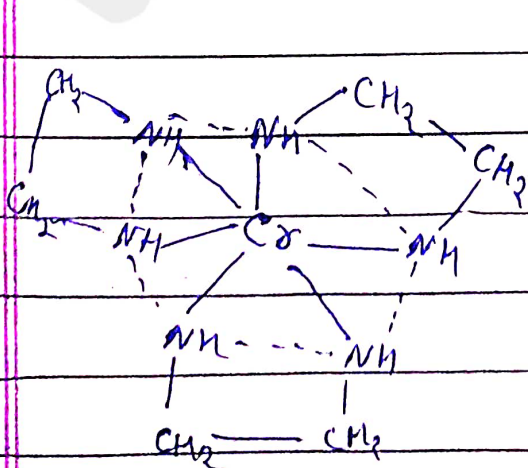 CH2 CH2
NH2 NH
CH2
CH2 NH Cr NH
NH NH
CH2 CH2